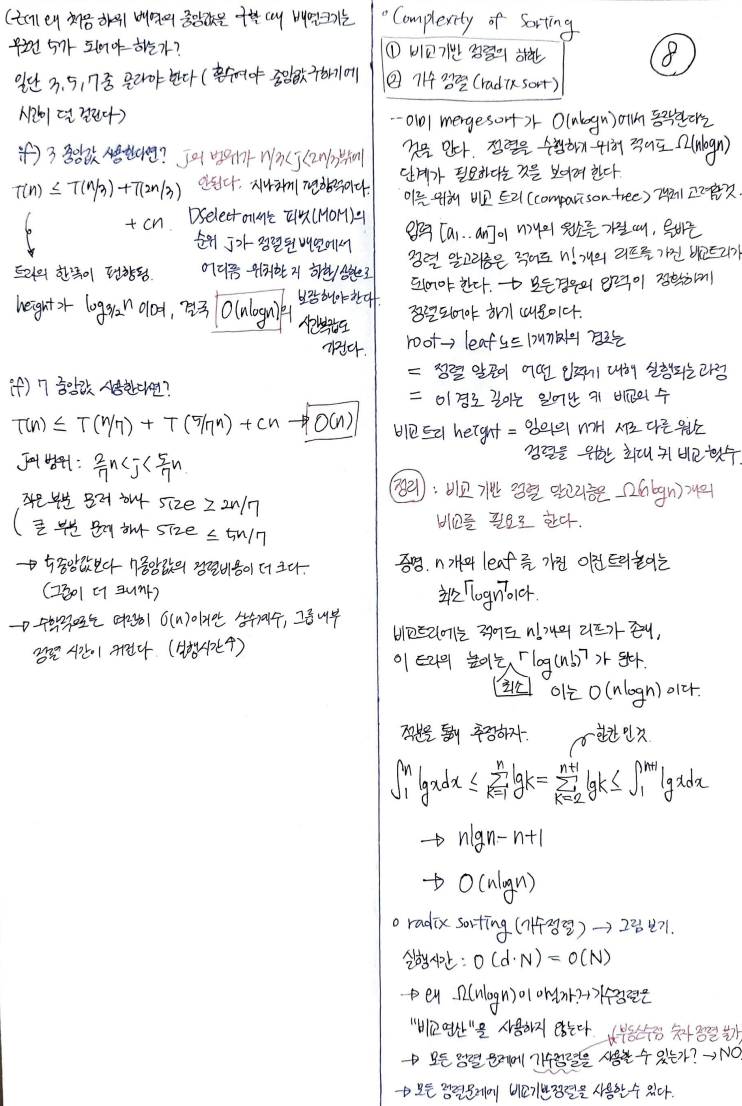 (근데 왜 처음 하위 배열의 중앙값을 구할 때 배열크기는
무조건 5가 되어야 하는가?
일단 3,5,7중 골라야 한다 (홀수여야 중앙값 구하기에
시간이 덜 걸린다)
if) 3 중앙값 사용한다면?
T(n) ≤ T(n/3) + T(2n/3)
+ cn
트리의 한쪽이 편향됨.
height가 log3/2n 이며, 결국 O(nlogn)의
시간복잡도
가진다.
j의 범위가 n/3<j<2n/3밖에
안된다. 지나치게 편향적이다.
DSelect에서는 피벗(MOM)의
순위 j가 정렬된 배열에서
어디쯤 위치한지 하한/상한으로
보장해야한다.
if) 7 중앙값 사용한다면?
T(n) ≤ T(n/7) + T(5/7n) + cn → O(n)
j의 범위: 2/7n<j<5/7n
작은 부분 문제 하나 size ≥ 2n/7
큰 부분 문제 하나 size ≤ 5n/7
→ 5중앙값보다 7중앙값의 정렬비용이 더 크다.
(그룹이 더 크니까)
→ 수학적으로는 여전히 O(n)이지만 상수계수, 그룹내부
정렬 시간이 커진다. (실행시간↑)
◦ Complexity of Sorting
① 비교기반 정렬의 하한
② 기수 정렬 (radix sort)
⑧
-- 이미 mergesort가 O(nlogn)에서 동작한다는
것을 안다. 정렬을 수행하기 위해 적어도 Ω(nlogn)
단계가 필요하다는 것을 보여려 한다.
이를 위해 비교 트리(comparison tree) 객체 고려할것.
입력 [a1..an]이 n개의 원소를 가질 때, 올바른
정렬 알고리즘은 적어도 n!개의 리프를 가진 비교트리가
되어야 한다. → 모든경우의 입력이 정확하게
정렬되어야 하기 때문이다.
root → leaf노드 1개까지의 경로는
= 정렬 알고가 어떤 입력에 대해 실행되는 과정
= 이 경로 길이는 일어난 키 비교의 수
비교트리 height = 임의의 n개 서로 다른 원소
정렬을 위한 최대 키 비교 횟수.
정리 : 비교 기반 정렬 알고리즘은 Ω(nlogn)개의
비교를 필요로 한다.
증명. n개의 leaf를 가진 이진트리높이는
최소⌈logn⌉이다.
비교트리에는 적어도 n!개의 리프가 존재,
이 트리의 높이는 최소 ⌈log(n!)⌉가 된다.
이는 O(nlogn)이다.
적분을 통해 추정하자.
한칸 민것
∫1n lgxdx ≤ Σk=1n lgk = Σk=2n+1 lgk ≤ ∫1n+1 lgxdx
→ nlgn-n+1
→ O(nlogn)
◦ radix sorting (기수정렬) → 그림 보기.
실행시간 : O(d·N) = O(N)
→ 왜 Ω(nlogn)이 아닐까?→기수정렬은
"비교연산"을 사용하지 않는다.
(부동소수점 숫자 정렬 불가)
→ 모든 정렬 문제에 기수정렬을 사용할 수 있는가? → NO.
→ 모든 정렬문제에 비교기반정렬을 사용할수 있다.